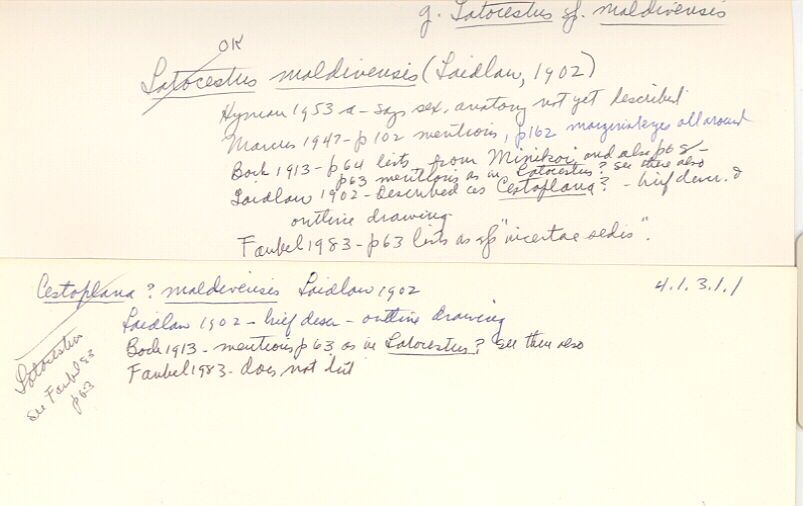 g. Latocestus sp. maldivensis
OK
Latocestus maldivensis (Laidlaw, 1902)
Hyman 1953a - says sex. anatomy not yet described
Marcus 1947 - p102 mentions, p162 marginal eyes all around
Bock 1913 - p64 lists from Minikoi, and also p68 -
p63 mentions as in Latocestus? see there also
Laidlaw 1902 - Described as Cestoplana? - brief descr. &
outline drawing.
Faubel 1983 - p63 lists as sp "incertae sedis".
Cestoplana? maldivensis Laidlaw 1902
4.1.3.1.1
Laidlaw 1902 - brief descr - outline drawing
Bock 1913 - mentions p63 as in Latocestus? see there also
Faubel 1983 - does not list
Latocestus
see Faubel 83
p63